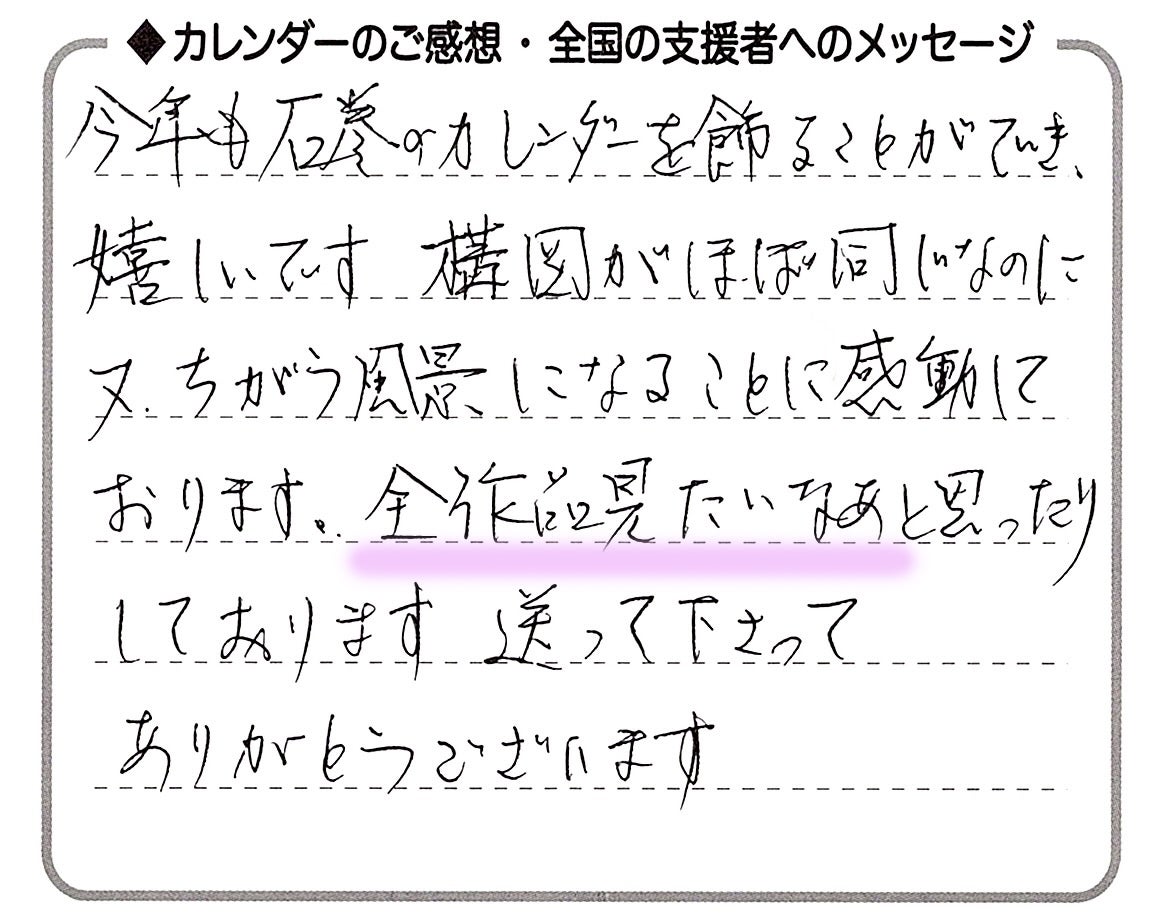 ◆カレンダーのご感想・全国の支援者へのメッセージ
今年も石巻のカレンダーを飾ることができ、
嬉しいです 構図がほぼ同じなのに
又、ちがう風景になることに感動して
おります。全作品見たいなあと思ったり
しております 送って下さって
ありがとうございます